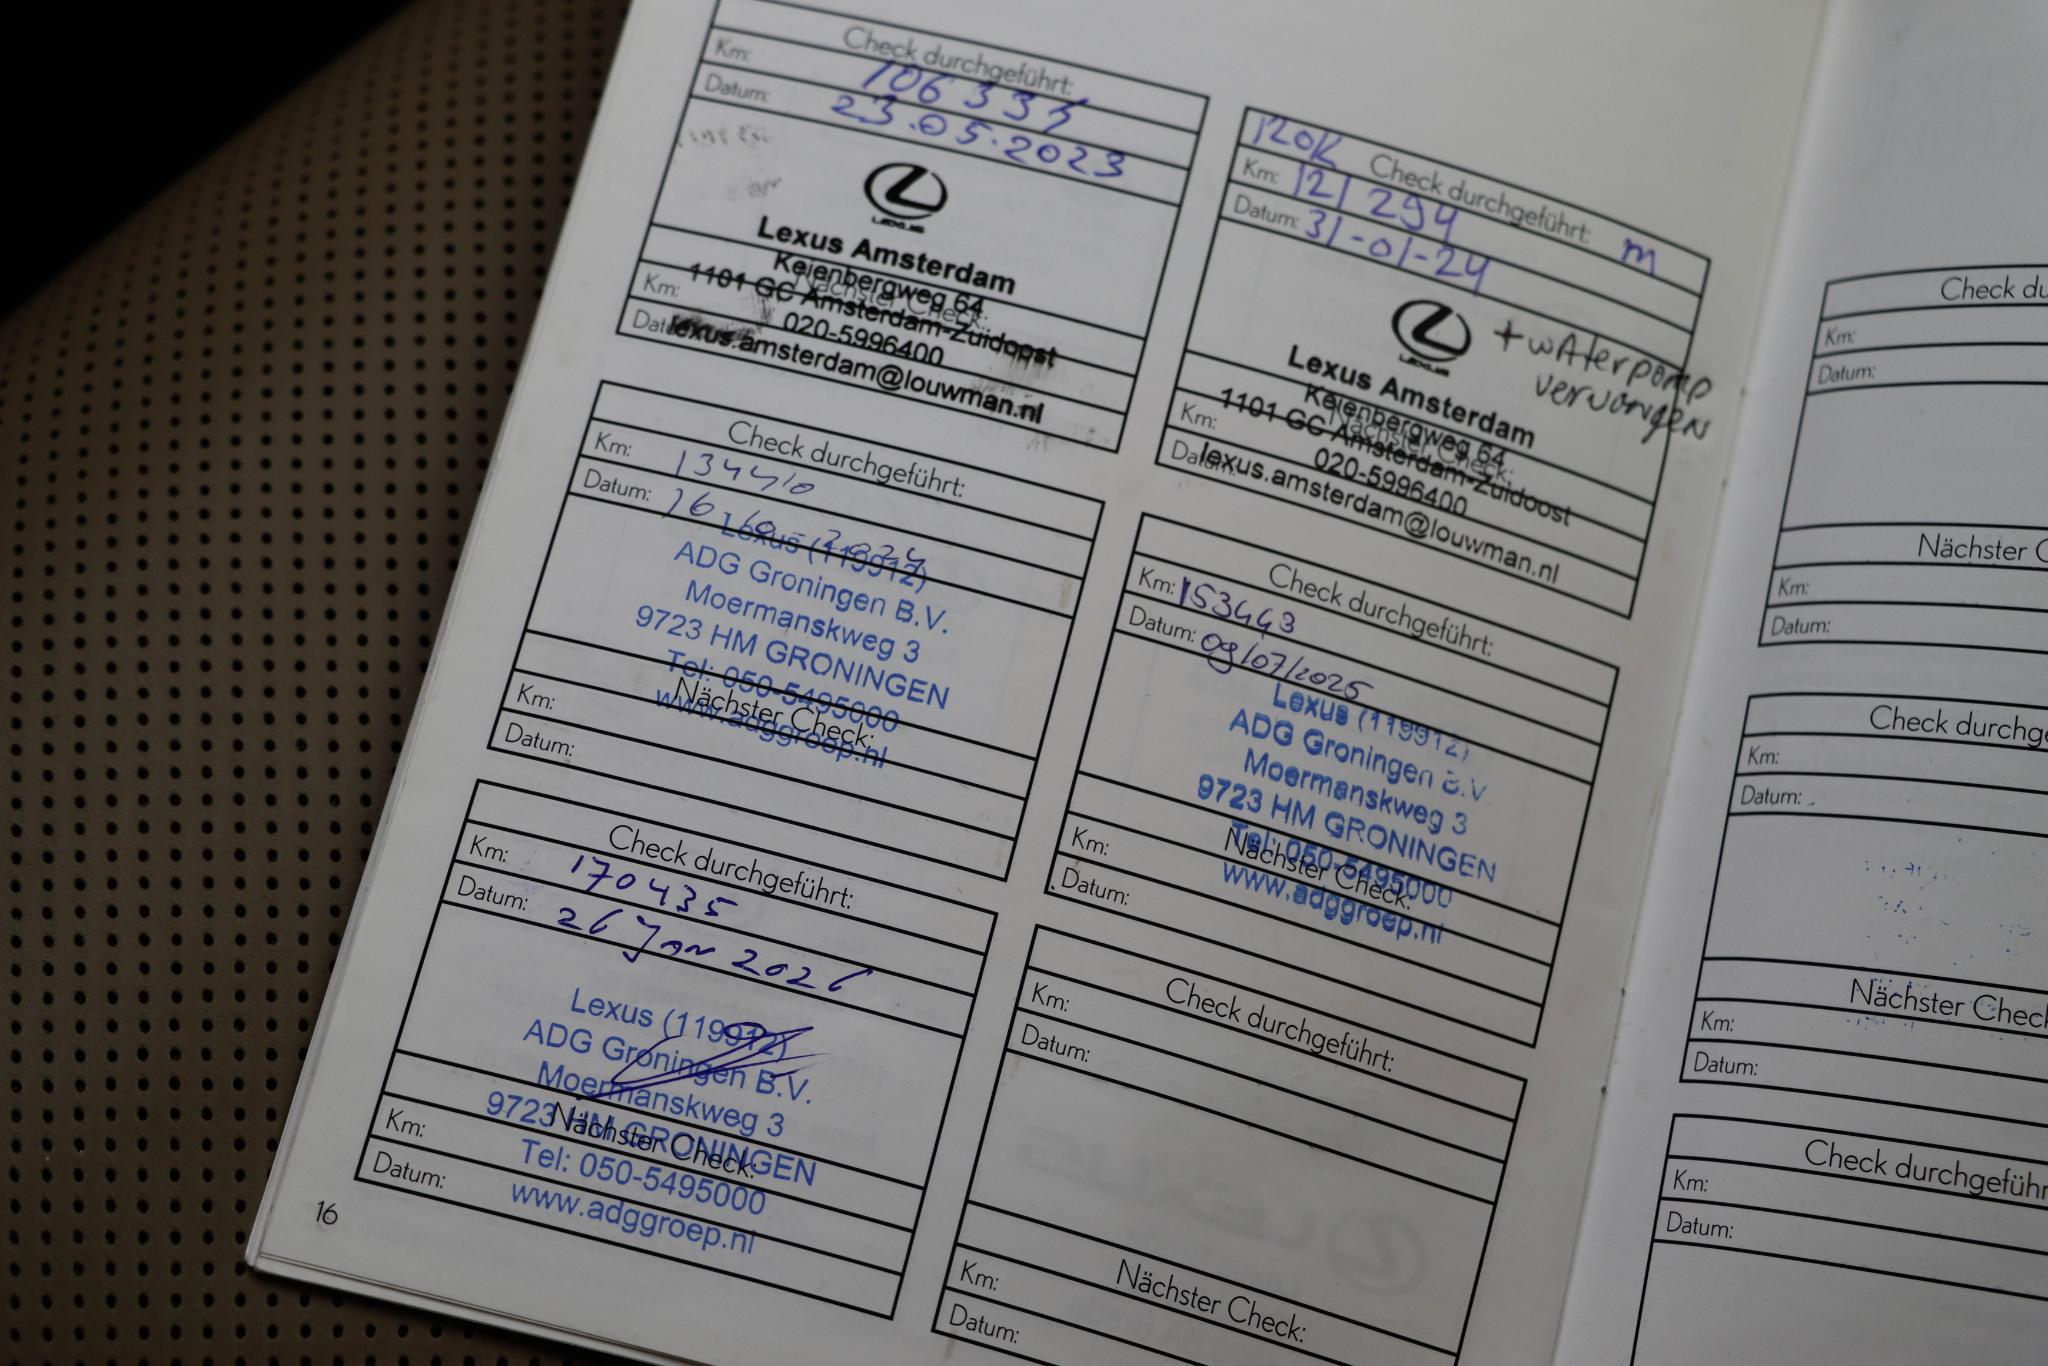 Check durchgeführt:
Km: 106 335
Datum: 23.05.2023
LEXUS
Lexus Amsterdam
Keienbergweg 64
Nächster Check:
1101 GC Amsterdam-Zuidoost
Km:
020-5996400
Datum:
lexus.amsterdam@louwman.nl
120K Check durchgeführt: m
Km: 121 294
Datum: 31-01-24
LEXUS
+ wAterpomp
vervangen
Lexus Amsterdam
Keienbergweg 64
Nächster Check:
1101 GC Amsterdam-Zuidoost
Km:
020-5996400
Datum:
lexus.amsterdam@louwman.nl
Check durchgeführt:
Km: 134410
Datum: 16-10-2024
Lexus (119912)
ADG Groningen B.V.
Moermanskweg 3
9723 HM GRONINGEN
Tel: 050-5495000
Nächster Check:
www.adggroep.nl
Km:
Datum:
Check durchgeführt:
Km: 153443
Datum: 09/07/2025
Lexus (119912)
ADG Groningen B.V.
Moermanskweg 3
9723 HM GRONINGEN
Tel: 050-5495000
Nächster Check:
www.adggroep.nl
Km:
Datum:
Check durchgeführt:
Km: 170435
Datum: 26 JAN 2026
Lexus (119912)
ADG Groningen B.V.
Moermanskweg 3
9723 HM GRONINGEN
Nächster Check:
Tel: 050-5495000
www.adggroep.nl
Km:
Datum:
Check durchgeführt:
Km:
Datum:
Nächster Check:
Km:
Datum:
16
Check du
Km:
Datum:
Nächster C
Km:
Datum:
Check durchge
Km:
Datum:
Nächster Check
Km:
Datum:
Check durchgeführ
Km:
Datum: